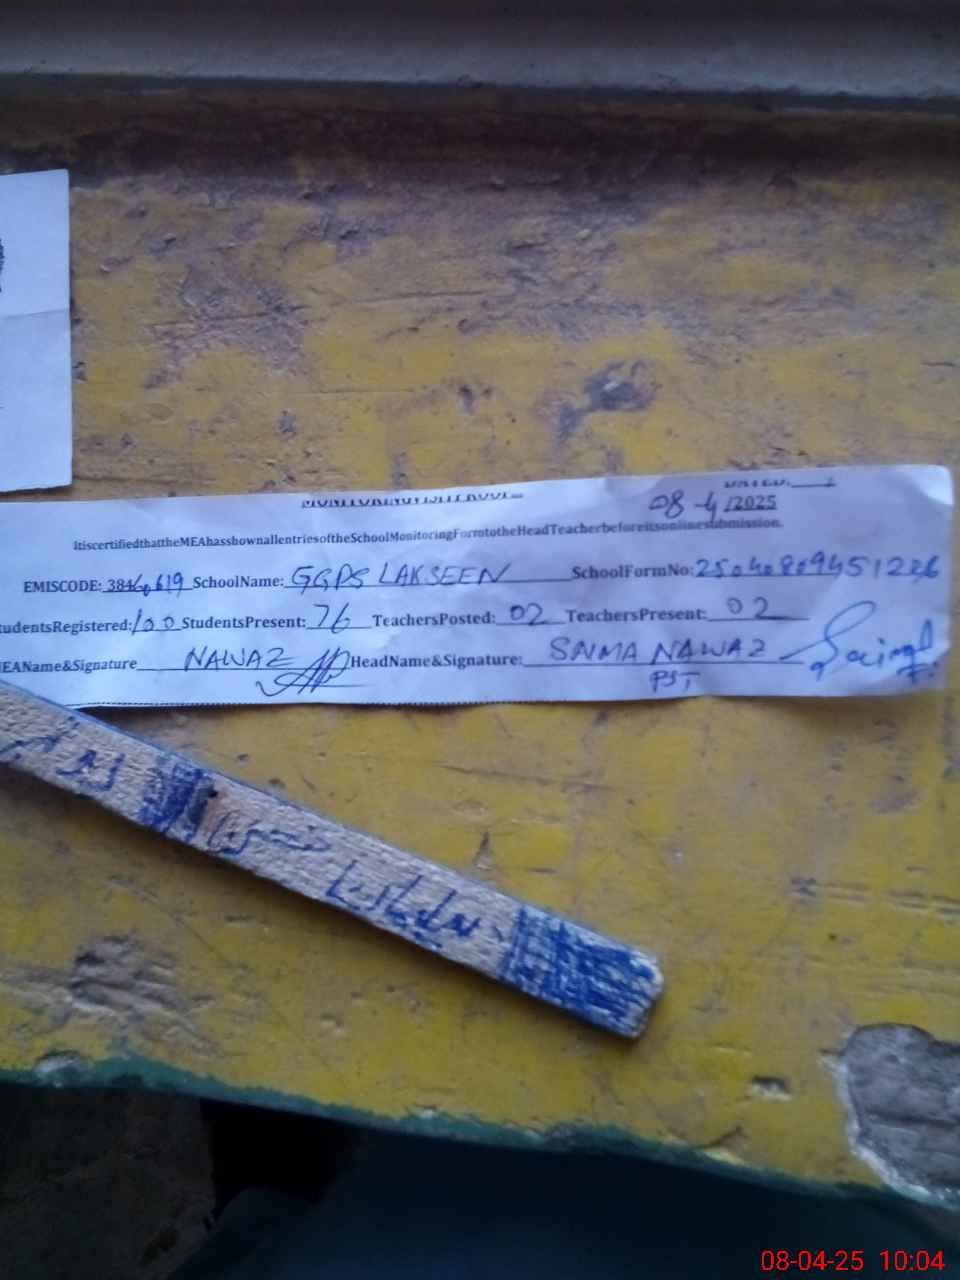 MONITORINGVISITPROOF
DATED:
08-4/2025
ItiscertifiedthattheMEAhasshownallentriesoftheSchoolMonitoringFormtotheHeadTeacherbeforeitsonlinesubmission.
EMISCODE: 38440619 SchoolName: GGPS LAKSEEN SchoolFormNo: 25040809451226
tudentsRegistered: 100 StudentsPresent: 76 TeachersPosted: 02 TeachersPresent: 02
EAName&Signature NAWAZ HeadName&Signature: SAIMA NAWAZ
PST
08-04-25 10:04